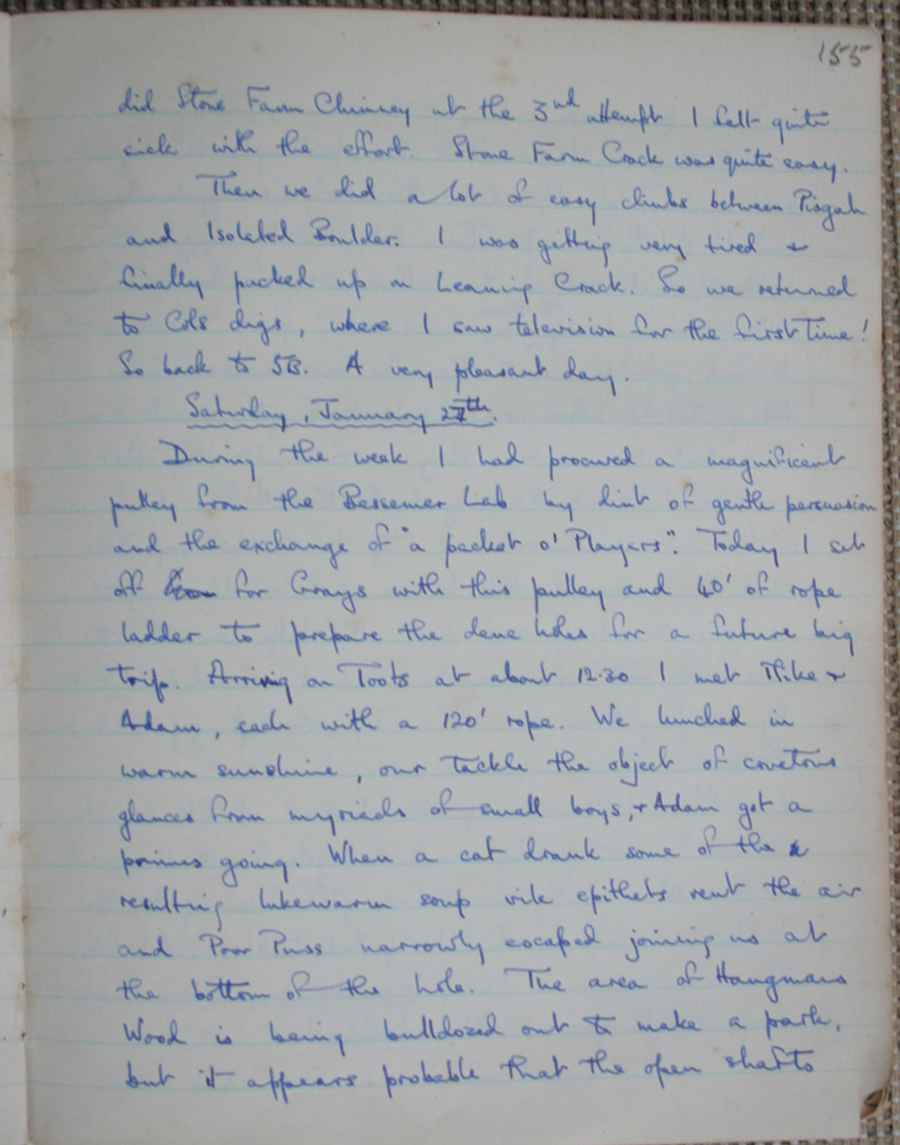 155
did Stone Farm Chimney at the 3rd attempt I felt quite
sick with the effort. Stone Farm Crack was quite easy.
Then we did a lot of easy climbs between Pisgah
and Isolated Boulder. I was getting very tired &
finally packed up on Leaning Crack. So we returned
to Cols digs, where I saw television for the first time!
So back to 5B. A very pleasant day.
Saturday, January 27th.
During the week I had procured a magnificent
pulley from the Bessemer Lab by dint of gentle persuasion
and the exchange of "a packet o' Players". Today I set
off for Grays with this pulley and 40' of rope
ladder to prepare the dene holes for a future big
trip. Arriving on Toots at about 12.30 I met Mike &
Adam, each with a 120' rope. We lunched in
warm sunshine, our tackle the object of covetous
glances from myriads of small boys, & Adam got a
primus going. When a cat drank some of the
resulting lukewarm soup vile epithets rent the air
and Poor Puss narrowly escaped joining us at
the bottom of the hole. The area of Hangmans
Wood is being bulldozed out to make a park,
but it appears probable that the open shafts